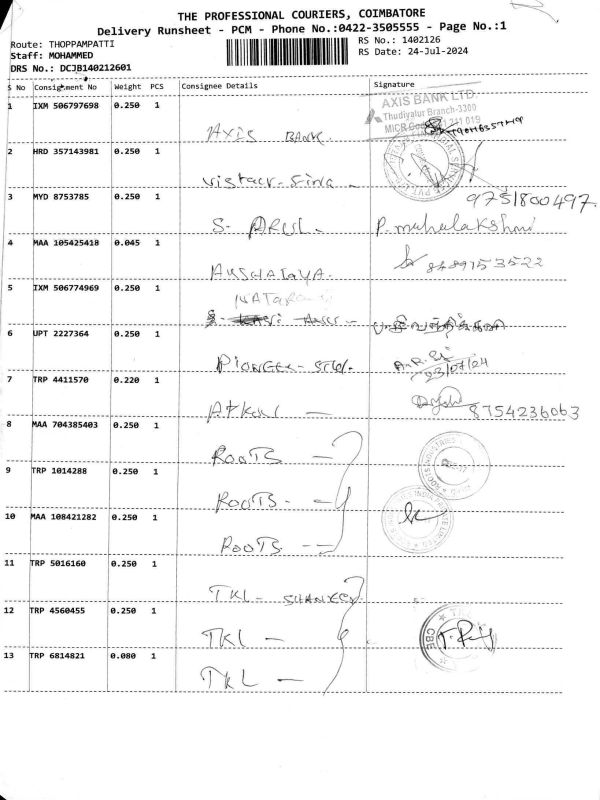 THE PROFESSIONAL COURIERS, COIMBATORE
Delivery Runsheet - PCM - Phone No.:0422-3505555 - Page No.:1
Route: THOPPAMPATTI
RS No.: 1402126
Staff: MOHAMMED
RS Date: 24-Jul-2024
DRS No.: DCJB140212601
S No Consignment No Weight PCS Consignee Details Signature
AXIS BANK LTD
Thudiyalur Branch-3300
1 IXM 506797698 0.250 1 AXIS BANK
2 HRD 357143981 0.250 1
3 MYD 8753785 0.250 1 S- ARUL- 9751800497.
4 MAA 105425418 0.045 1 AKSHAYAYA. 8489153522
5 IXM 506774969 0.250 1
6 UPT 2227364 0.250 1 PIONEER- 23/07/24
7 TRP 4411570 0.220 1 8754236063
8 MAA 704385403 0.250 1 ROOTS —
9 TRP 1014288 0.250 1 ROOTS- —
10 MAA 108421282 0.250 1 ROOTS —
11 TRP 5016160 0.250 1 TKL-
12 TRP 4560455 0.250 1 TKL —
CBE
13 TRP 6814821 0.080 1 TKL —